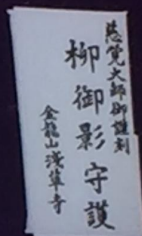 慈覚大師御謹刻
柳御影守護
金龍山浅草寺